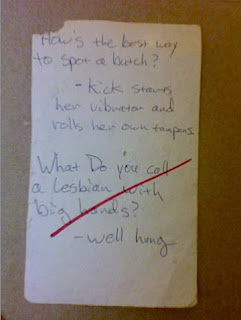 How's the best way
to spot a butch?
- Kick starts
her vibrator and
rolls her own tampons
What Do you call
a lesbian with
big hands?
- well hung